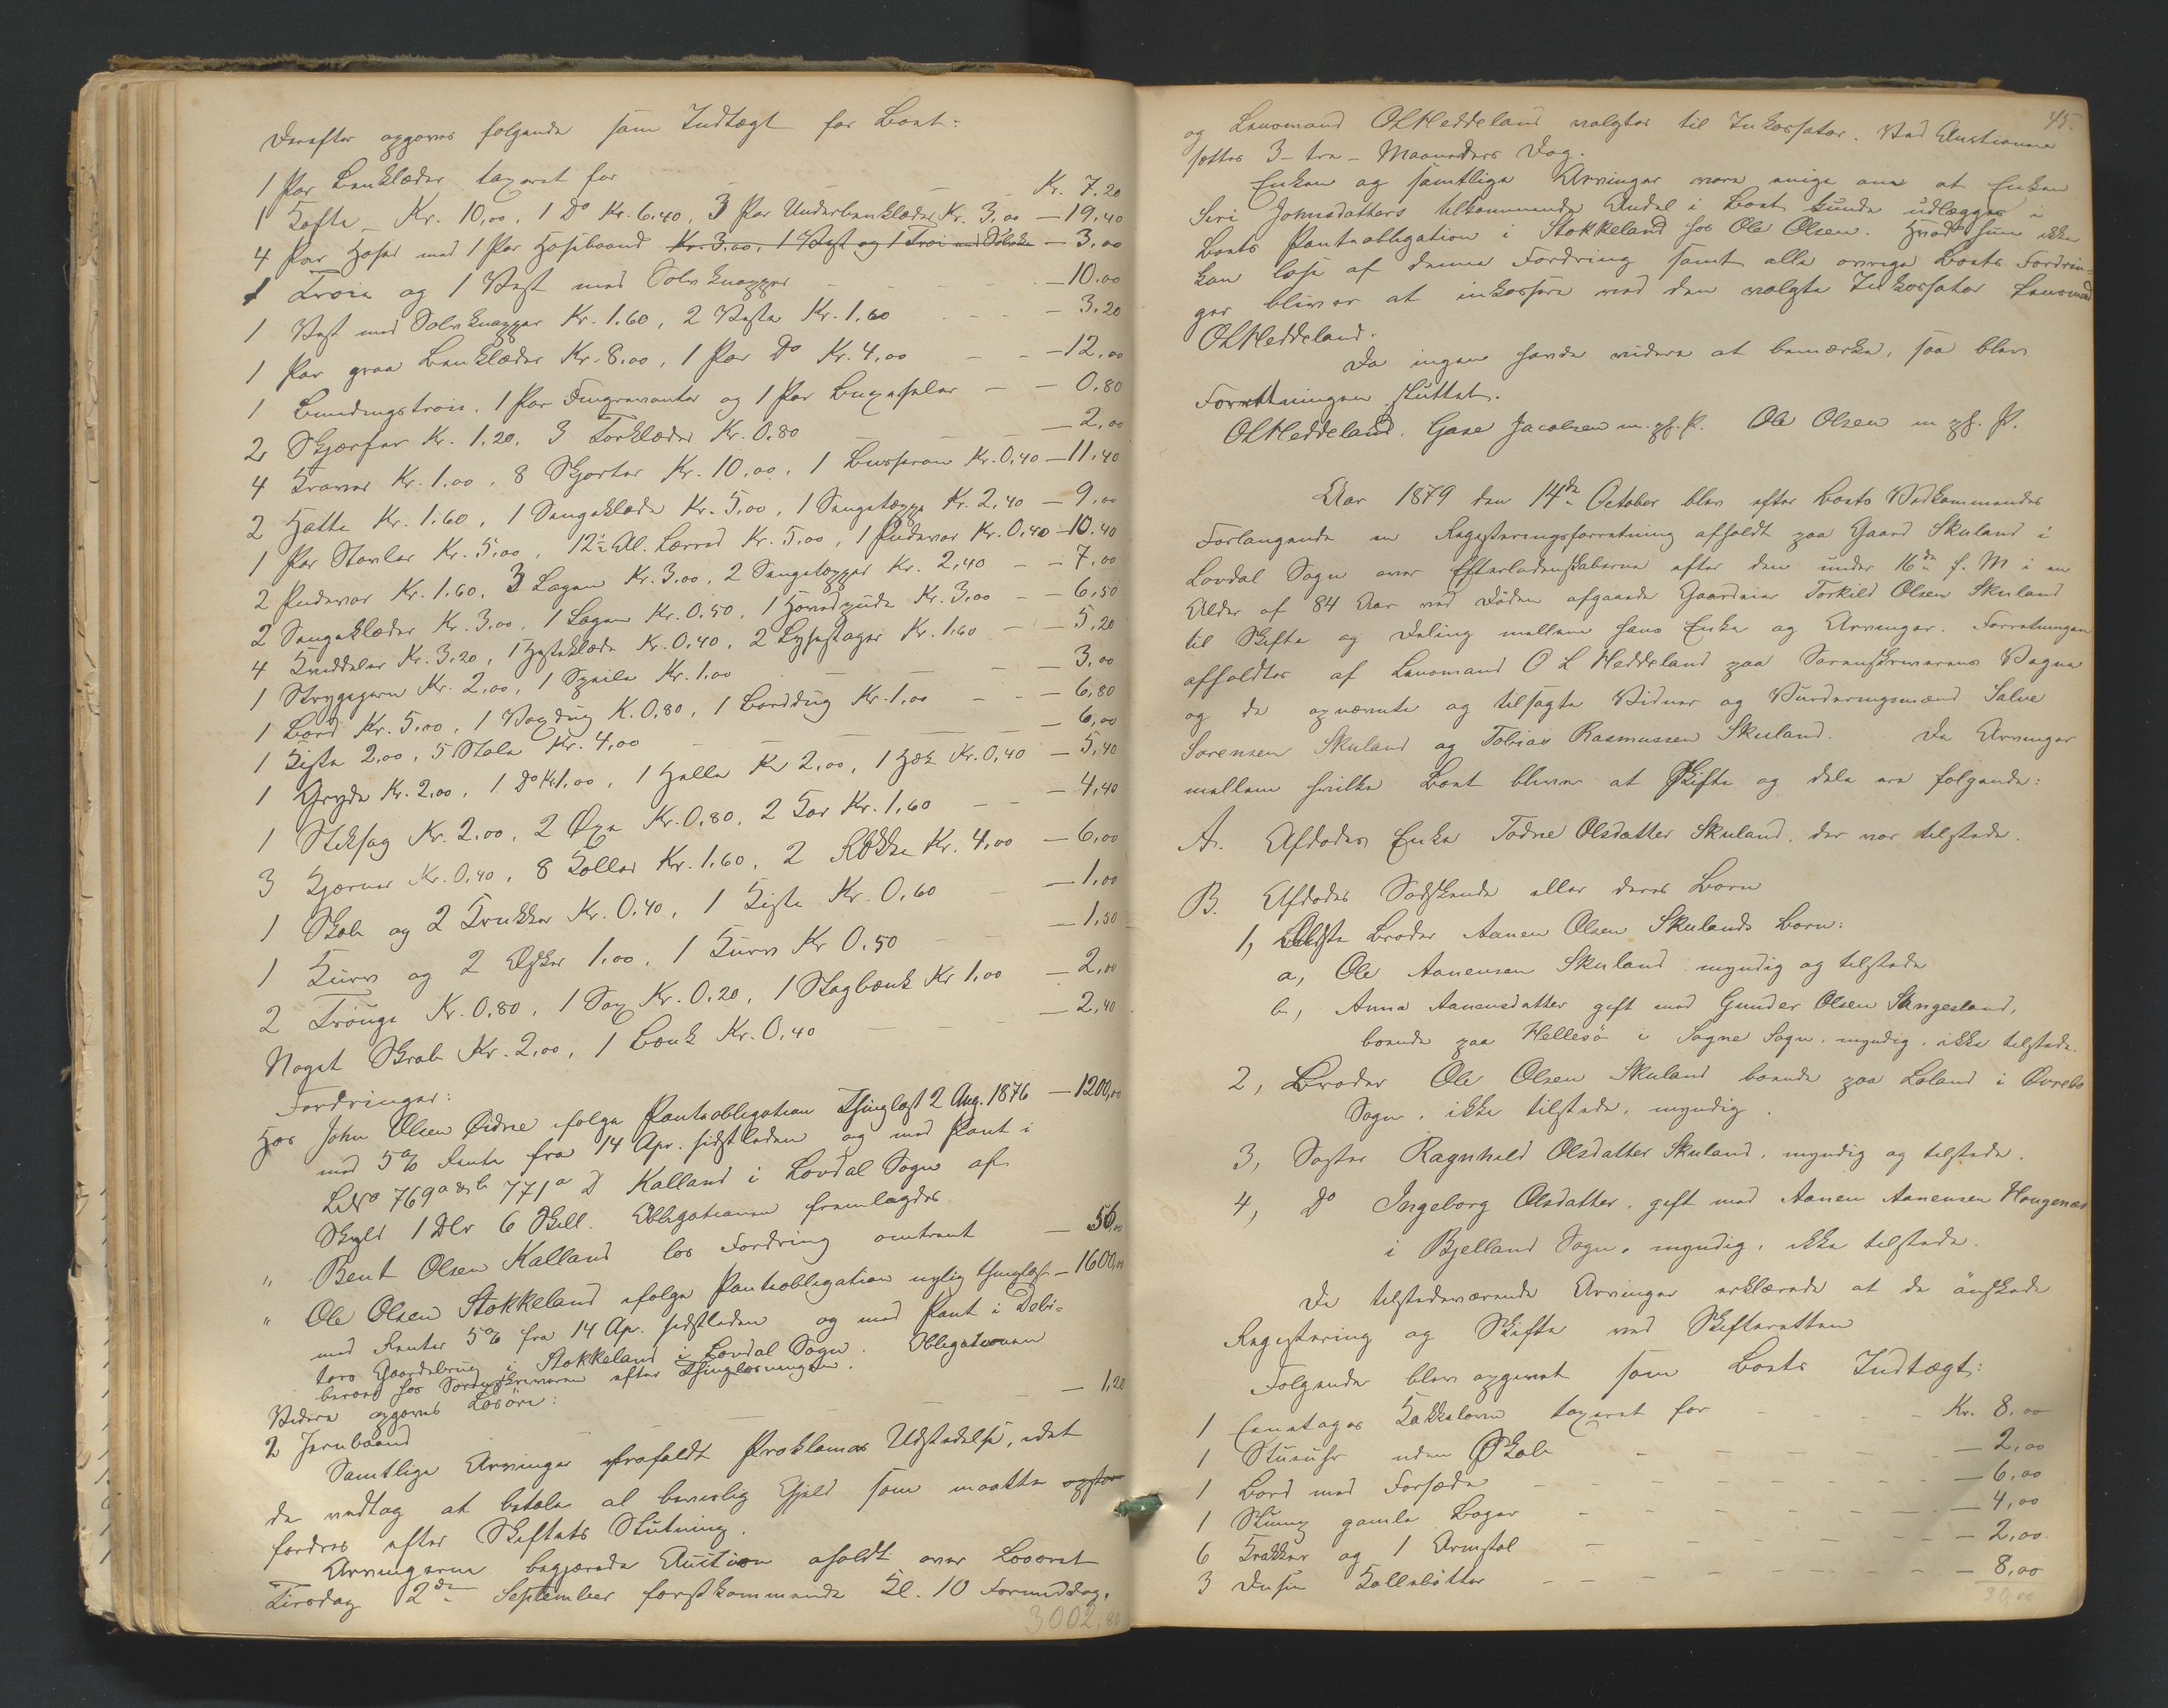 Derefter opgaves følgende som Indtægt for Boet:
1 Par Benklæder taxeret for — — — Kr. 7,20
1 Kofte Kr. 10,00, 1 Do Kr. 6,40, 3 Par Underbenklæder Kr. 3,00 — 19,40
4 Par Hoser med 1 Par Hosebaand Kr. 3,00, 1 Vest og 1 Troie med Sølvkn — 3,00
1 Troie og 1 Vest med Sølvknapper — 10,00
1 Vest med Sølvknapper Kr. 1.60, 2 Veste Kr. 1,60 — 3,20
1 Par graa Benklæder Kr. 8,00, 1 Par Do Kr. 4,00 — 12,00
1 Bundingstroie, 1 Par Fingervanter og 1 Par Buxeseler — 0,80
2 Skjærfer Kr. 1.20, 3 Torklæder Kr. 0.80 — 2,00
4 Kraver Kr. 1.00, 8 Skjorter Kr. 10,00, 1 Busseron Kr. 0,40 — 11,40
2 Hatte Kr. 1.60, 1 Sengeklæde Kr. 5,00, 1 Sengetæppe Kr. 2,40 — 9,00
1 Par Støvler Kr. 5,00, 12½ Al. Lærred Kr. 5,00, 1 Pudevar Kr. 0,40 — 10,40
2 Pudevar Kr. 1,60, 3 Lagen Kr. 3,00, 2 Sengetæpper Kr. 2,40 — 7,00
2 Sengeklæder Kr. 3,00, 1 Lagen Kr. 0,50, 1 Hovedpude Kr. 3,00 — 6,50
4 Kviddeler Kr. 3,20, 1 Hesteklæde Kr. 0,40, 2 Lysestager Kr. 1.60 — 5,20
1 Strygejern Kr. 2,00, 1 Speile Kr. 1.00 — 3,00
1 Bord Kr. 5,00, 1 Voxdug K. 0,80, 1 Borddug Kr. 1,00 — 6,80
1 Kiste 2,00, 5 Stole Kr. 4,00 — 6,00
1 Gryde Kr. 2,00, 1 Do Kr. 1.00, 1 Helle Kr 2,00, 1 Hæk Kr. 0,40 — 5,40
1 Stiksag Kr. 2.00, 2 Øxe Kr. 0.80, 2 Kar Kr. 1,60 — 4,40
3 Kjerner Kr. 0,40, 8 Koller Kr. 1,60, 2 Rokke Kr. 4,00 — 6,00
1 Skab og 2 Krukker Kr. 0,40, 1 Kiste Kr. 0,60 — 1,00
1 Kurv og 2 Æsker 1,00, 1 Kurv Kr 0,50 — 1,50
2 Trouge Kr. 0,80, 1 Sax Kr. 0.20, 1 Slagbænk Kr 1,00 — 2,00
Noget Skrab Kr. 2,00, 1 Bænk Kr. 0,40 — 2,40
Fordringer:
Hos John Olsen Øidne ifølge Panteobligation Thinglæst 2 Aug. 1876 — 1200,00
med 5% Rente fra 14 Apr. sidstleden og med Pant i
LNo 769a & b 771a D Kalland i Løvdal Sogn af
Skyld 1 Dlr 6 Skill. Obligationen fremlagdes
" Bent Olsen Kalland løs Fordring omtrent — 56,00
" Ole Olsen Stokkeland ifølge Panteobligation nylig thinglæst — 1600,00
med Renter 5% fra 14 Apr. sidstleden og med Pant i Debi-
tors Gaardsbrug i Stokkeland i Løvdal Sogn. Obligationen
beroer hos Sorenskriveren efter Thinglæsningen.
Videre opgaves Løsøre:
2 Jernbaand — 1,20
Samtlige Arvinger frafaldt Proklamas Udstedelse, idet
de vedtog at betale al beviislig Gjeld som maatte
fordres efter Skiftets Slutning.
Arvingerne begjærede Auction afholdt over Løsøret
Tirsdag 2den September førstkommende Kl. 10 Formiddag,
3002,80
45.
og Lensmand OLHeddeland valgtes til Inkassator. Ved Auctionen
sættes 3 - tre - Maaneders Dag.
Enken og samtlige Arvinger vare enige om at Enken
Siri Johnsdatters tilkommende Andel i Boet kunde udlægges i
Boets Panteobligation i Stokkeland hos Ole Olsen. Hvad hun ikke
kan løse af denne Fordring samt alle øvrige Boets Fordrin-
ger bliver at inkassere ved den valgte Inkassator Lensmand
OLHeddeland.
Da ingen havde videre at bemærke, saa blev
Forretningen sluttet.
OLHeddeland. Gase Jacobsen m. p. P. Ole Olsen m p. P.
Aar 1879 den 14de October blev efter Boets Vedkommendes
Forlangende en Registreringsforretning afholdt paa Gaard Skuland i
Løvdal Sogn over Efterladenskaberne efter den under 16de f. M i en
Alder af 84 Aar ved Døden afgaaede Gaardeier Torkild Olsen Skuland
til Skifte og Deling mellem hans Enke og Arvinger. Forretningen
afholdtes af Lensmand O L Heddeland paa Sorenskriverens Vegne
og de opnævnte og tilsagte Vidner og Vurderingsmænd Salve
Sørensen Skuland og Tobias Rasmussen Skuland. De Arvinger
mellem hvilke Boet bliver at skifte og dele ere følgende:
A. Afdødes Enke Todne Olsdatter Skuland, der var tilstede.
B. Afdødes Sødskende eller deres Børn
1, Ældste Broder Aanen Olsen Skulands Børn:
a, Ole Aanensen Skuland myndig og tilstede
b, Anna Aanensdatter gift med Gunder Olsen Stangesland,
boende paa Hellesö i Søgne Sogn, myndig, ikke tilstede.
2, Broder Ole Olsen Skuland boende paa Loland i Øvrebø
Sogn, ikke tilstede, myndig.
3, Søster Ragnhild Olsdatter Skuland, myndig og tilstede.
4, Do Ingeborg Olsdatter, gift med Aanen Aanensen Hougenæs
i Bjelland Sogn, myndig, ikke tilstede.
De tilstedeværende Arvinger erklærede at de önskede
Registrering og Skifte ved Skifteretten
Følgende blev opgivet som Boets Indtægt:
1 Eenetages Kakkelovn taxeret for — Kr. 8,00
1 Stueuhr uden Skab — 2,00
1 Bord med Forsæde — 6,00
1 Slump gamle Bøger — 4,00
6 Krakker og 1 Armstol — 2,00
3 Dusin Kollebötter — 8,00
30,00